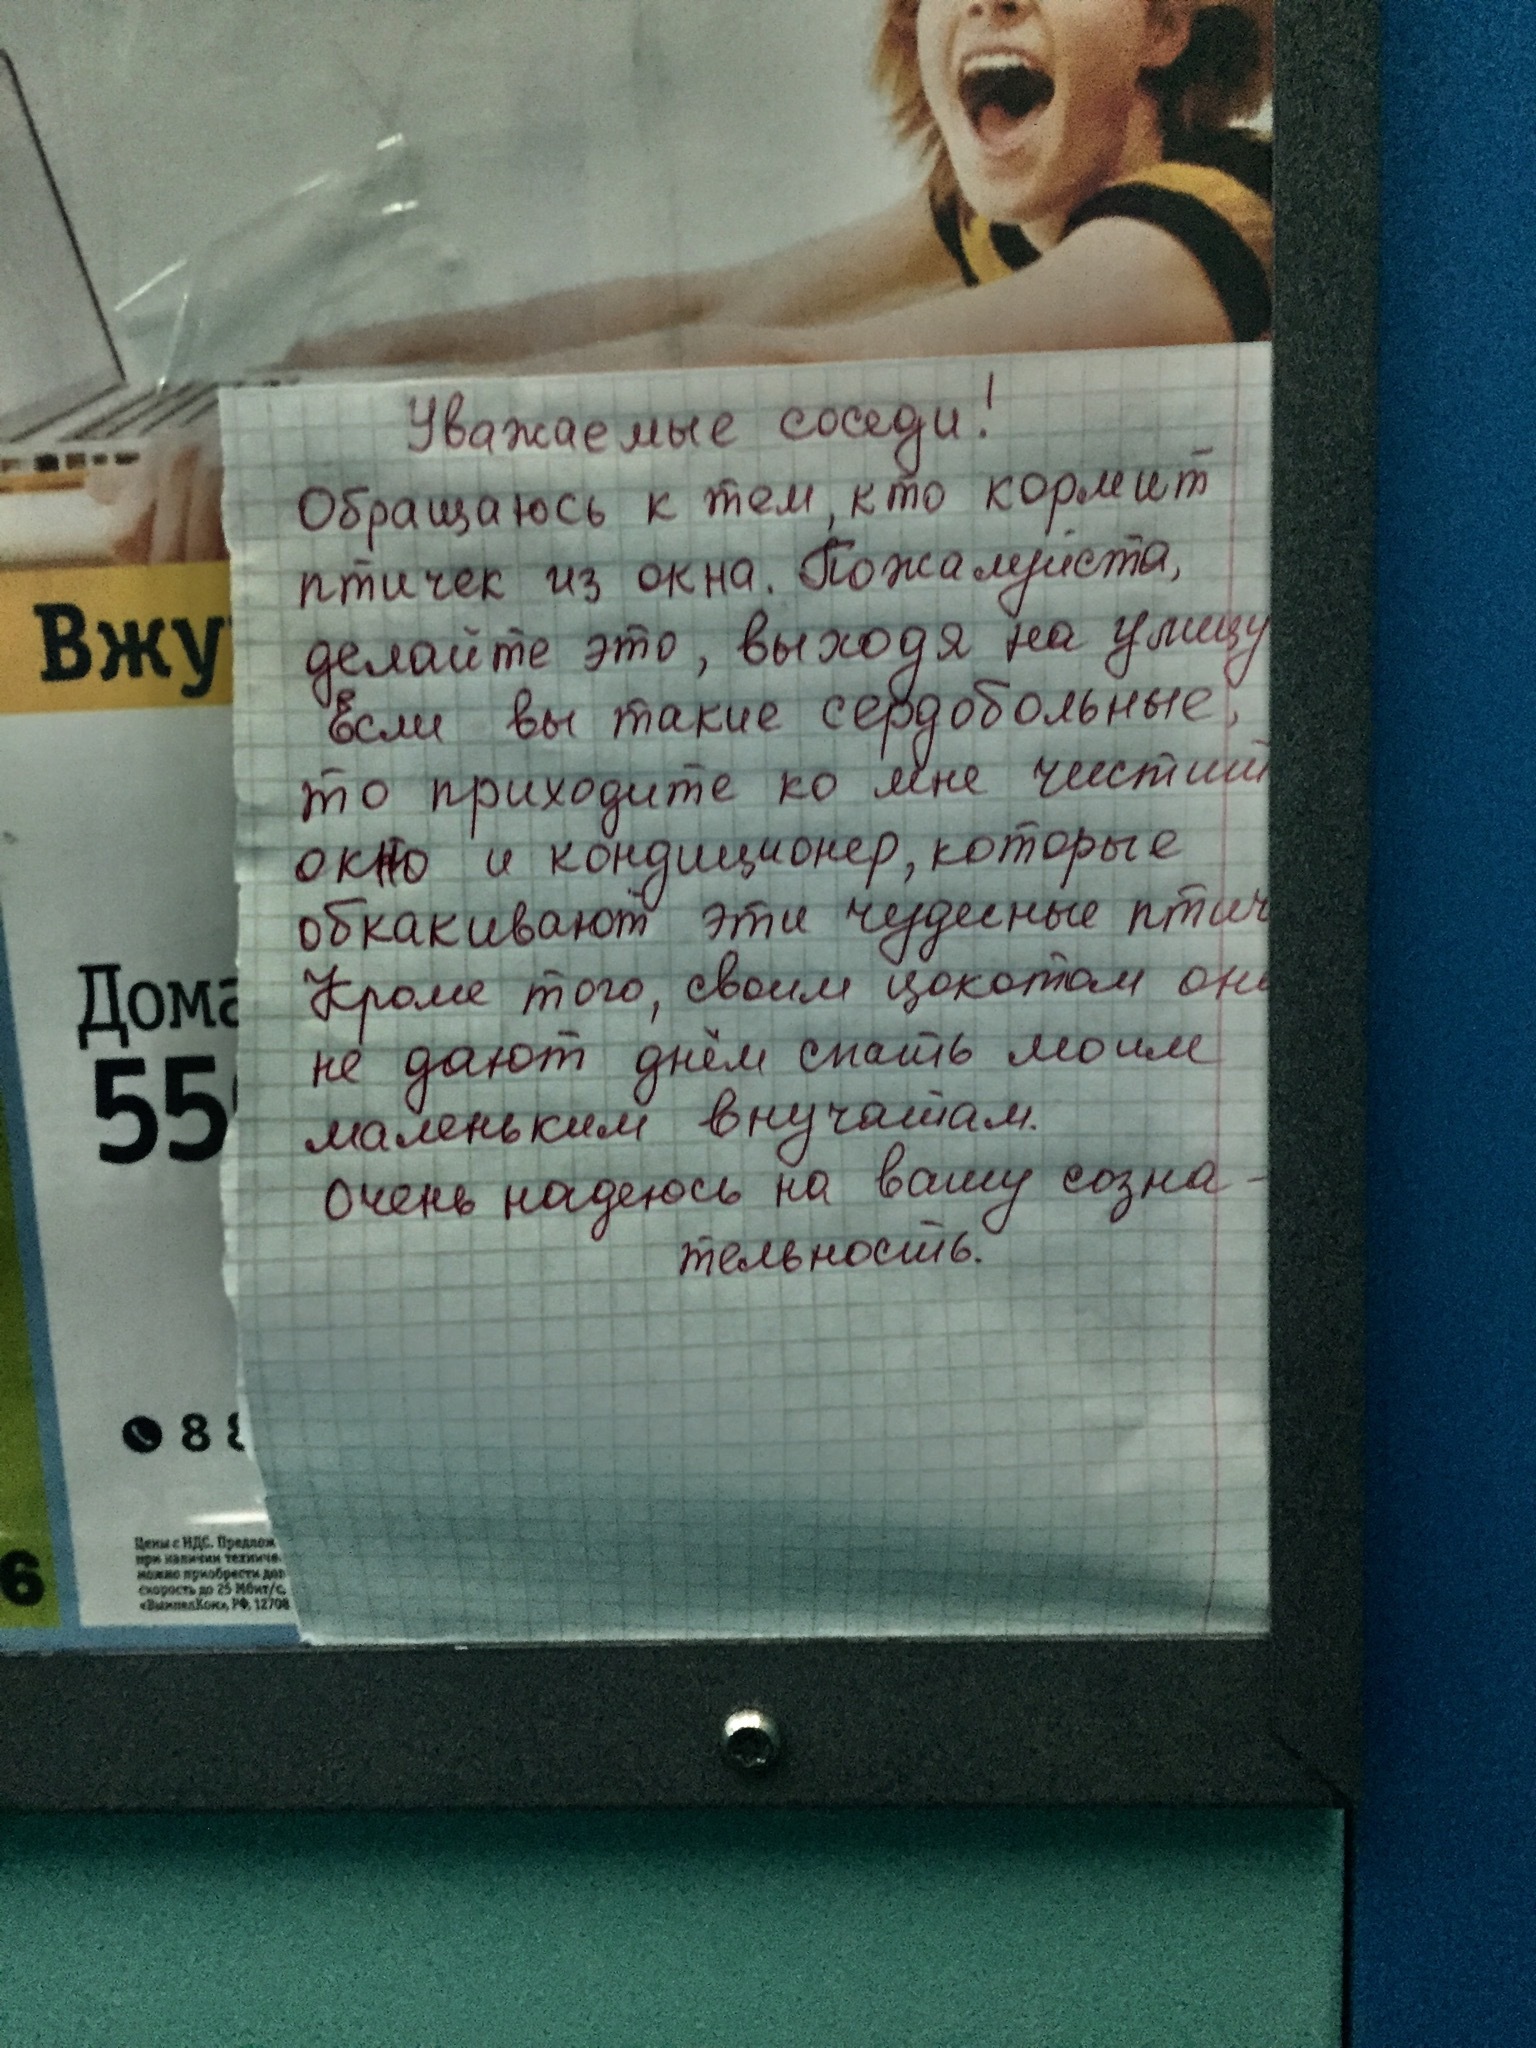 Уважаемые соседи!
Обращаюсь к тем, кто кормит
птичек из окна. Пожалуйста,
делайте это, выходя на улицу
Если вы такие сердобольные,
то приходите ко мне чистит
окно и кондиционер, которые
обкакивают эти чудесные птич
Кроме того, своим цокотом они
не дают днём спать моим
маленьким внучатам.
Очень надеюсь на вашу созна-
тельность.
Вжу
Дома
55
8 8
Цены с НДС. Предлож
при наличии техниче
можно приобрести доп
скорость до 25 Мбит/с.
«ВымпелКом», РФ, 12708
6